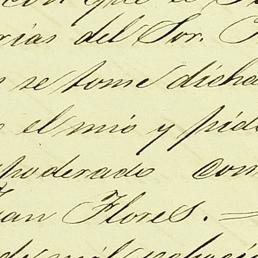 con que el
rias del Sor.
se tome dicha
el mio y pido
poderado com
Juan Flores. —